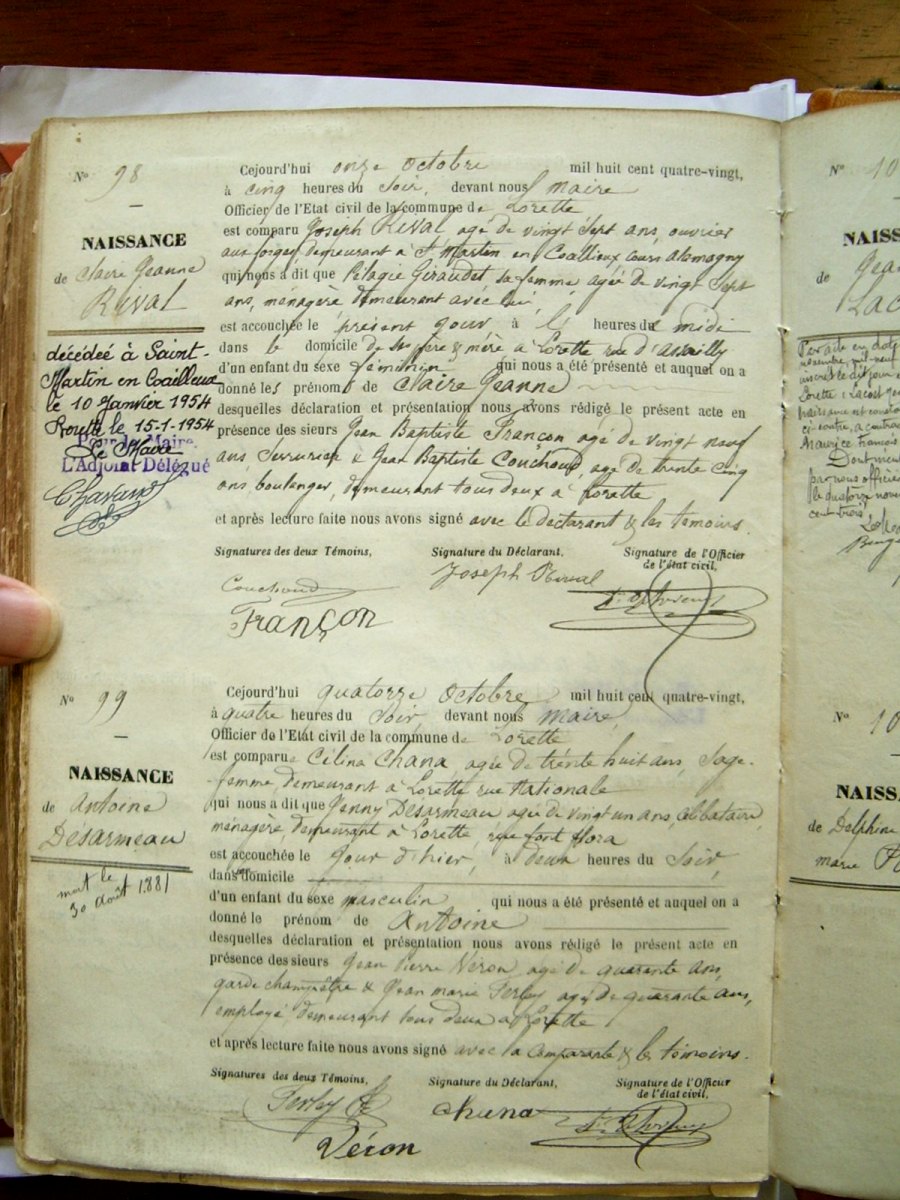 N° 98
NAISSANCE
de Claire Jeanne
Rival
décédeé à Saint-
Martin en Coailleux
le 10 Janvier 1954
Lorette le 15-1-1954
Pour le Maire,
Le Maire
L'Adjoint Délégué
Cejourd'hui onze Octobre mil huit cent quatre-vingt,
à cinq heures du soir, devant nous maire
Officier de l'Etat civil de la commune de Lorette
est comparu Joseph Rival agé de vingt Sept ans, ouvrier
aux forges, demeurant à St Martin en Coallieux
qui nous a dit que Pélagie Giraudet sa femme agée de vingt Sept
ans, ménagère demeurant avec lui,
est accouchée le présent jour à heures de midi
dans le domicile de père & mère à Lorette rue d'assailly
d'un enfant du sexe féminin qui nous a été présenté et auquel on a
donné les prénoms de Claire Jeanne
desquelles déclaration et présentation nous avons rédigé le présent acte en
présence des sieurs Jean Baptiste Françon agé de vingt neuf
ans Serrurier & Jean Baptiste Couchoud, agé de trente cinq
ans boulanger, demeurant tous deux à Lorette
et après lecture faite nous avons signé avec le déclarant & les témoins.
Signatures des deux Témoins, Signature du Déclarant, Signature de l'Officier
de l'état civil,
Couchoud Joseph Rival
Françon
N° 99
NAISSANCE
de Antoine
Désarmeau
mort le
30 août 1881
Cejourd'hui quatorze Octobre mil huit cent quatre-vingt,
à quatre heures du soir, devant nous maire,
Officier de l'Etat civil de la commune de Lorette
est comparue Célina Chana, agée de trente huit ans, Sage-
femme, demeurant à Lorette rue Nationale
qui nous a dit que Jenny Désarmeau agée de vingt un ans, célibataire,
ménagère demeurant à Lorette, rue fort flora
est accouchée le jour d'hier, à deux heures du soir,
dans domicile
d'un enfant du sexe masculin qui nous a été présenté et auquel on a
donné le prénom de Antoine
desquelles déclaration et présentation nous avons rédigé le présent acte en
présence des sieurs Jean Pierre Véron, agé de quarante ans,
garde champêtre & Jean marie Ferley agé de quarante ans,
employé demeurant tous deux à Lorette
et après lecture faite nous avons signé avec la comparante & les témoins.
Signatures des deux Témoins, Signature du Déclarant, Signature de l'Officier
de l'état civil,
Ferley Chana
Véron
N° 10
NAISS
de Jean
Lac
N° 10
NAISSA
de Delphine
marie